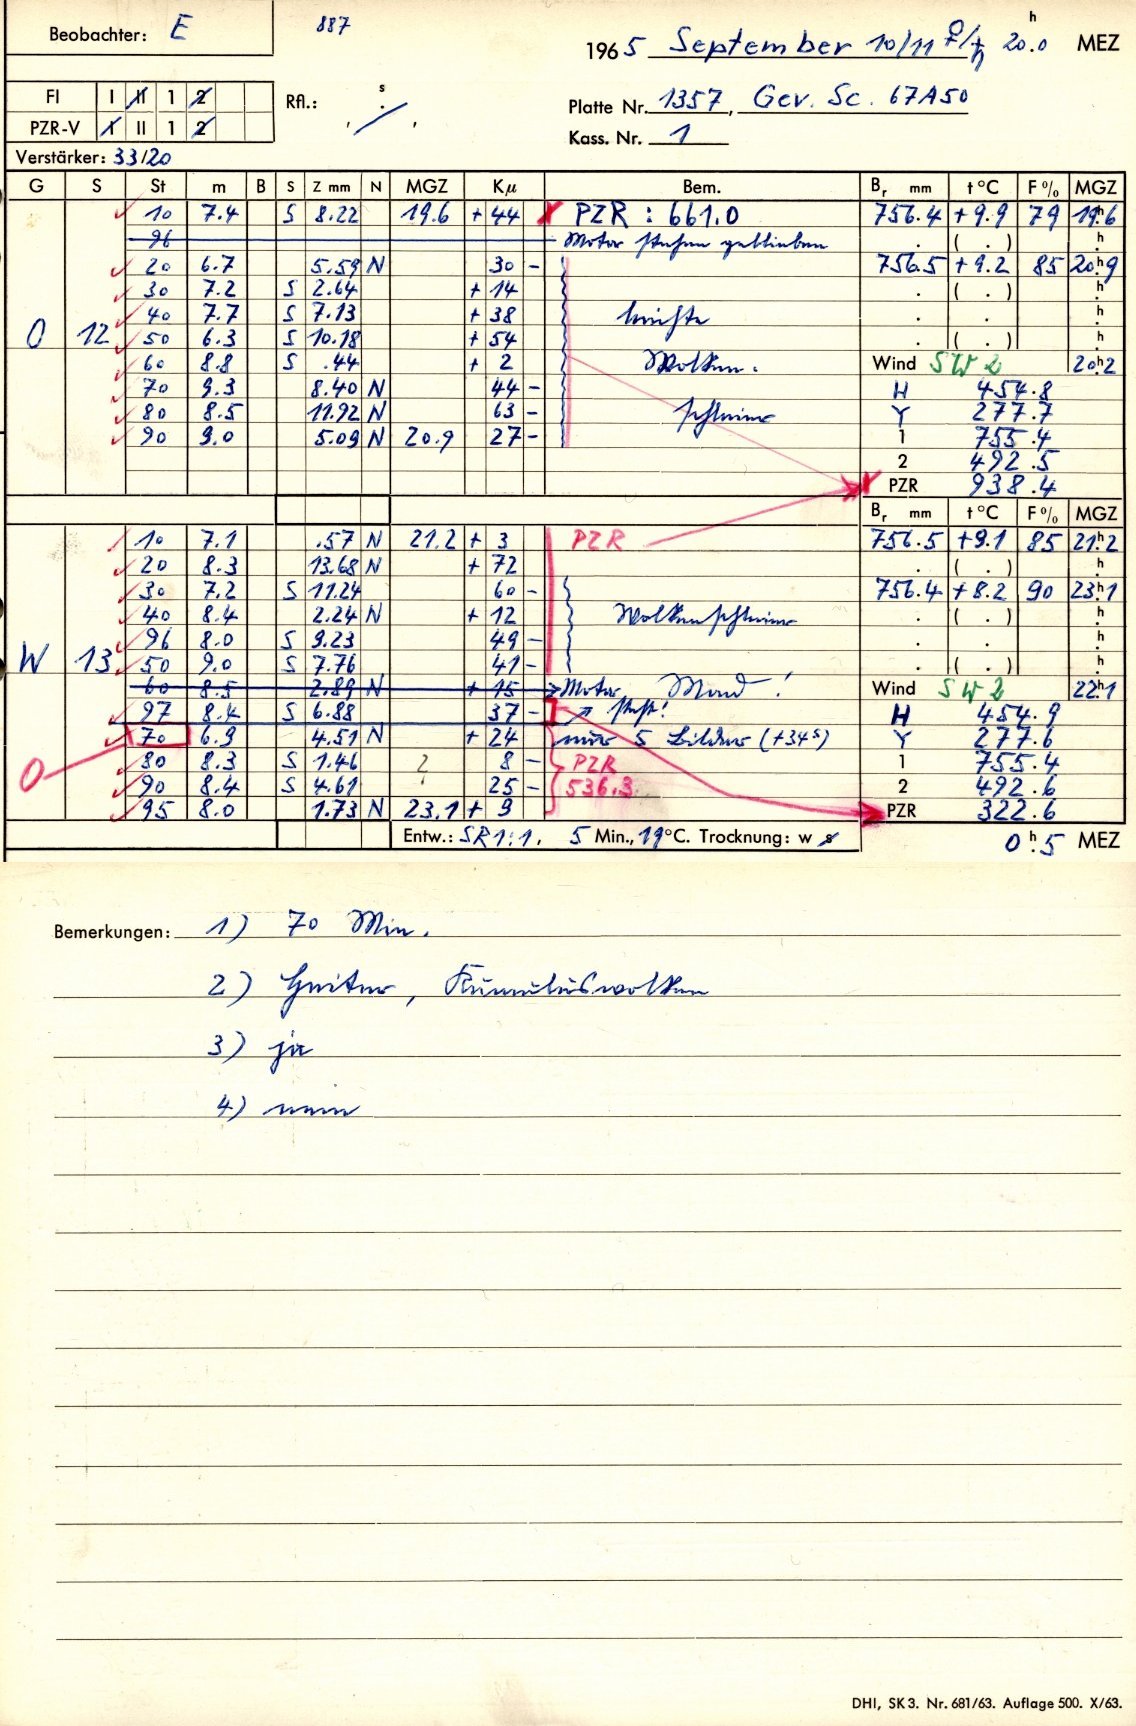 Beobachter: E 887
1965 September 10/11 ♀/♄ 20.0 h MEZ
Fl I II 1 2 Rfl.: s
Platte Nr. 1357, Gev. Sc. 67A50
PZR-V I II 1 2
Kass. Nr. 1
Verstärker: 33/20
G S St m B S Z mm N MGZ Kμ Bem. Br mm t°C F% MGZ
10 7.4 S 8.22 19.6 + 44 PZR : 661.0 756.4 +9.9 79 19h.6
96 Motor stehen geblieben . ( . ) h
20 6.7 5.59 N 30 - 756.5 +9.2 85 20h.9
30 7.2 S 2.64 + 14 . ( . ) h
40 7.7 S 7.13 + 38 leichte . . h
O 12 50 6.3 S 10.18 + 54 ( . ) h
60 8.8 S .44 + 2 Wolken- Wind SW 2 20h.2
70 9.3 8.40 N 44 - H 454.8
80 8.5 11.92 N 63 - schleier Y 277.7
90 9.0 5.09 N 20.9 27 - 1 755.4
2 492.5
PZR 938.4
Br mm t°C F% MGZ
10 7.1 .57 N 21.2 + 3 PZR 756.5 +9.1 85 21h.2
20 8.3 13.68 N + 72 . ( . ) h
30 7.2 S 11.24 60 - 756.4 +8.2 90 23h.1
40 8.4 2.24 N + 12 Wolkenschleier . ( . ) h
96 8.0 S 9.23 49 - . . h
W 13 50 9.0 S 7.76 41 - . ( . ) h
60 8.5 2.89 N + 15 Motor Mond! Wind SW 2 22h.1
97 8.4 S 6.88 37 - steht! H 454.9
70 6.9 4.51 N + 24 nur 5 Bilder (+34s) Y 277.6
O 80 8.3 S 1.46 ? 8 - PZR 1 755.4
90 8.4 S 4.61 25 - 536.3 2 492.6
95 8.0 1.73 N 23.1 + 9 PZR 322.6
Entw.: SR 1:1, 5 Min., 19°C. Trocknung: w s 0h.5 MEZ
Bemerkungen: 1) 70 Min.
2) Heiter, Kumuluswolken
3) ja
4) nein
DHI, SK 3. Nr. 681/63. Auflage 500. X/63.